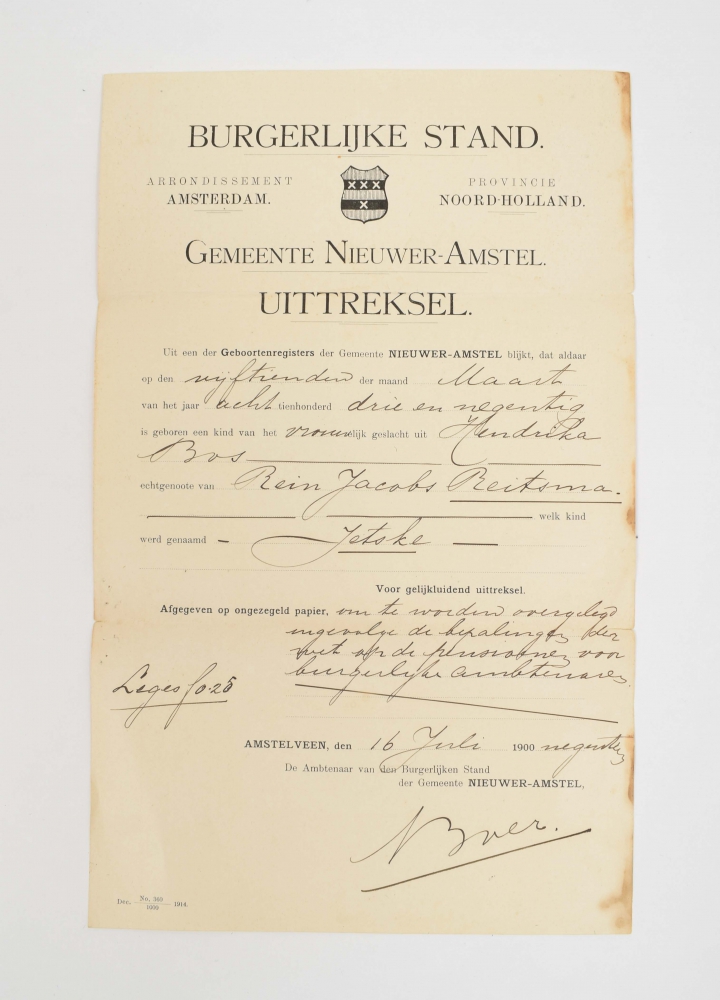 BURGERLIJKE STAND.
ARRONDISSEMENT
AMSTERDAM.
PROVINCIE
NOORD-HOLLAND.
GEMEENTE NIEUWER-AMSTEL.
UITTREKSEL.
Uit een der Geboortenregisters der Gemeente NIEUWER-AMSTEL blijkt, dat aldaar
op den vijftienden der maand Maart
van het jaar acht tienhonderd drie en negentig
is geboren een kind van het vrouwelijk geslacht uit Hendrika
Bos
echtgenoote van Rein Jacobs Reitsma.
welk kind
werd genaamd – Jetske —
Voor gelijkluidend uittreksel.
Afgegeven op ongezegeld papier, om te worden overgelegd
ingevolge de bepalingen der
wet op de pensioenen voor
burgerlijke ambtenaren.
Leges f 0.25
AMSTELVEEN, den 16 Juli 1900 negentien
De Ambtenaar van den Burgerlijken Stand
der Gemeente NIEUWER-AMSTEL,
N Boer.
Dec. No. 363/1000 1914.